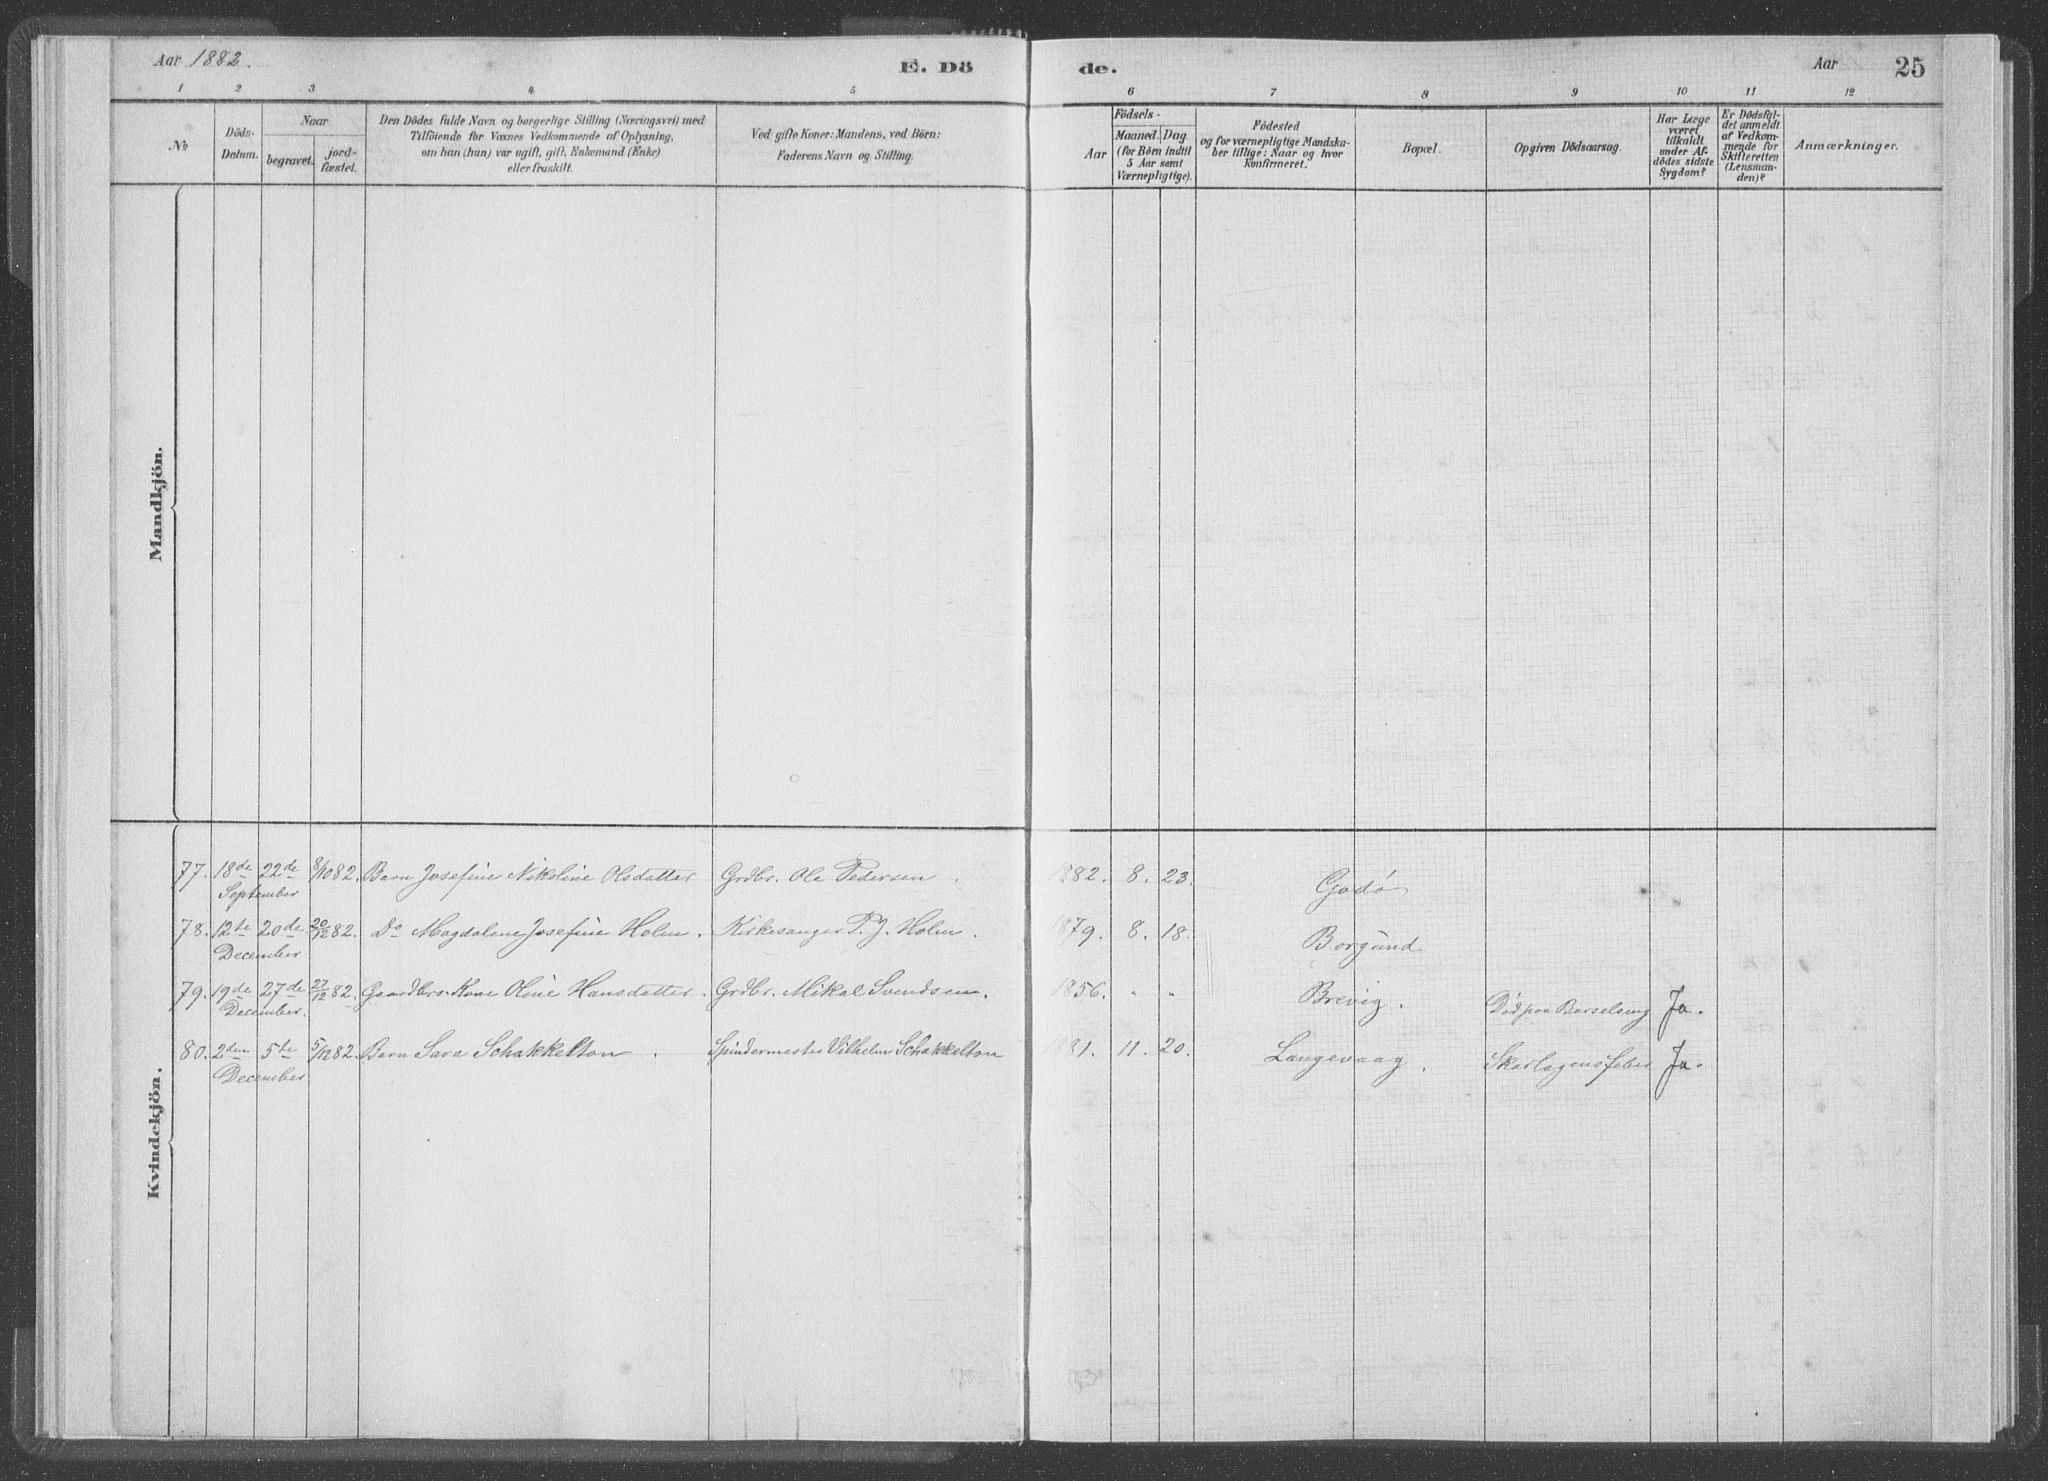 Aar 1882.
E. Dö
de.
Aar
25
1 2 3 4 5 6 7 8 9 10 11 12
No
Döds-
Datum.
Naar
begravet.
jord-
fæstet.
Den Dödes fulde Navn og borgerlige Stilling (Næringsvei) med
Tilföiende for Voxnes Vedkommende af Oplysning,
om han (hun) var ugift, gift, Enkemand (Enke)
eller fraskilt.
Ved gifte Koner: Mandens, ved Börn:
Faderens Navn og Stilling.
Födsels-
Aar
Maaned. Dag.
(for Börn indtil
5 Aar samt
Værnepligtige).
Födested
og for værnepligtige Mandska-
ber tillige: Naar og hvor
konfirmeret.
Bopæl.
Opgiven Dödsaarsag.
Har Læge
været
tilkaldt
under Af-
dödes sidste
Sygdom?
Er Dödsfal-
det anmeldt
af Vedkom-
mende for
Skifteretten
(Lensman-
den)?
Anmærkninger.
Mandkjön.
Kvindekjön.
77. 18de 22de 8/10 82. Barn Josefine Nikoline Olsdatter Grdbr. Ole Pedersen. 1882. 8. 23. Godø
September
78. 12te 20de 20/12 82. Do Magdalene Josefine Holm. Kirkesanger P. J. Holm. 1879. 8. 18. Borgund
December
79. 19de 27de 27/12 82. Gaardbrs. Kone Oline Hansdatter. Grdbr. Mikal Svendsen. 1856. " " Brevig. Død paa Barselseng Ja.
December.
80. 2den 5te 5/12 82. Barn Sara Schakkelton. Spindermester Vilhelm Schakkelton 1881. 11. 20. Langevaag. Skarlagensfeber Ja.
December